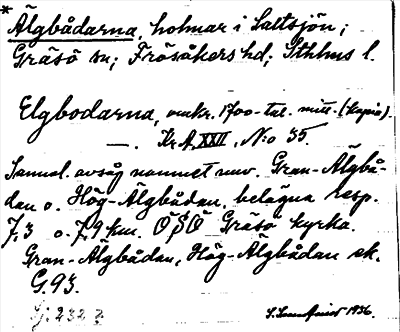 * Älgbådarna, holmar i Saltsjön;
Gräsö sn; Frösåkers hd; Sthlms l.
Elgbodarna, omkr. 1700-tal. mitt. (kopia).
—. Kr.A. XXII, N:o 35.
Sannol. avsåg namnet nuv. Gran-Älgbå-
dan o. Hög-Älgbådan, belägna resp.
7,3 o. 7,9 km. ÖSÖ Gräsö kyrka.
Gran-Älgbådan, Hög-Älgbådan ek.
G.93.
1936.